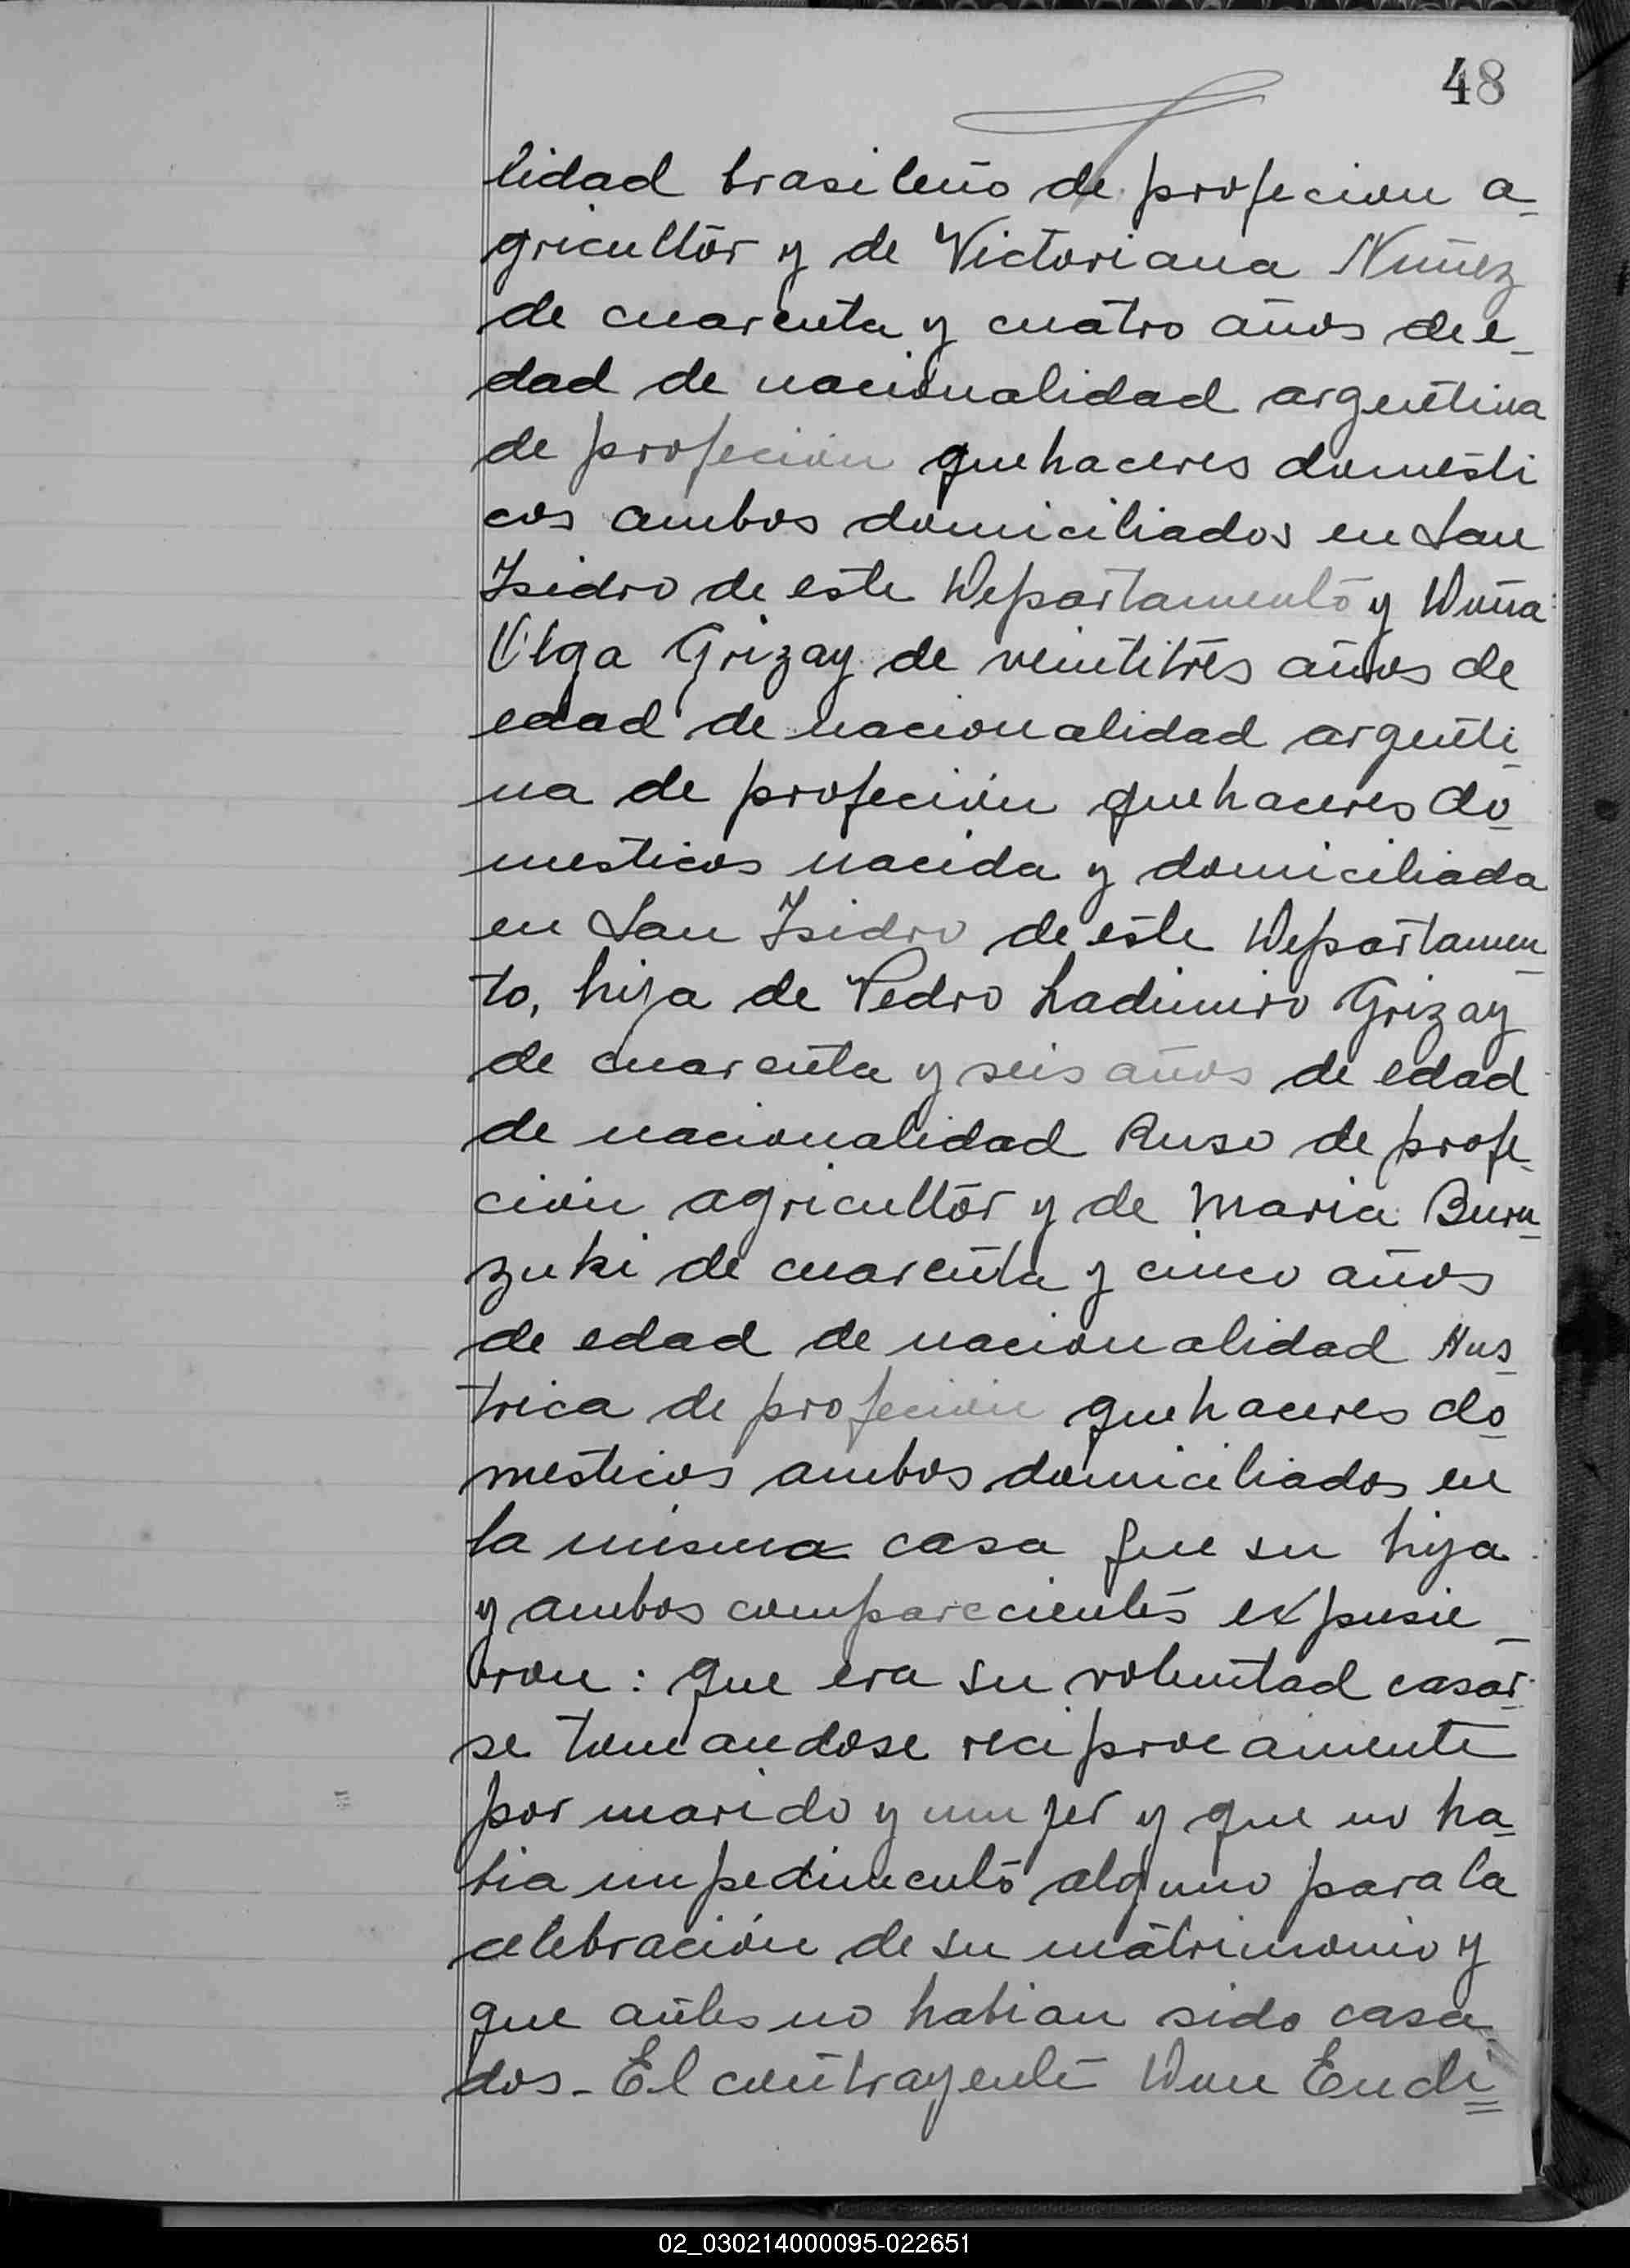 48
lidad brasileño de profecion a-
gricultor y de Victoriana Nuñez
de cuarenta y cuatro años de e-
dad de nacionalidad argentina
de profeción quehaceres domesti
cos ambos domiciliados en San
Isidro de este Departamento y Doña
Olga Grizay de veintitrés años de
edad de nacionalidad argenti-
na de profeción quehaceres do-
mesticos nacida y domiciliada
en San Isidro de este Departamen-
to, hija de Pedro Ladimiro Grizay
de cuarenta y seis años de edad
de nacionalidad Ruso de profe-
ción agricultor y de Maria Buru-
zuki de cuarenta y cinco años
de edad de nacionalidad Aus-
trica de profeción quehaceres do-
mesticos ambos domiciliados en
la misma casa que su hija
y ambos comparecientes expusie-
ron: que era su voluntad casar-
se tomandose reciprocamente
por marido y mujer y que no ha-
bia impedimento alguno para la
celebración de su matrimonio y
que antes no habian sido casa-
dos - El contrayente Don Eucli=
02_030214000095-022651